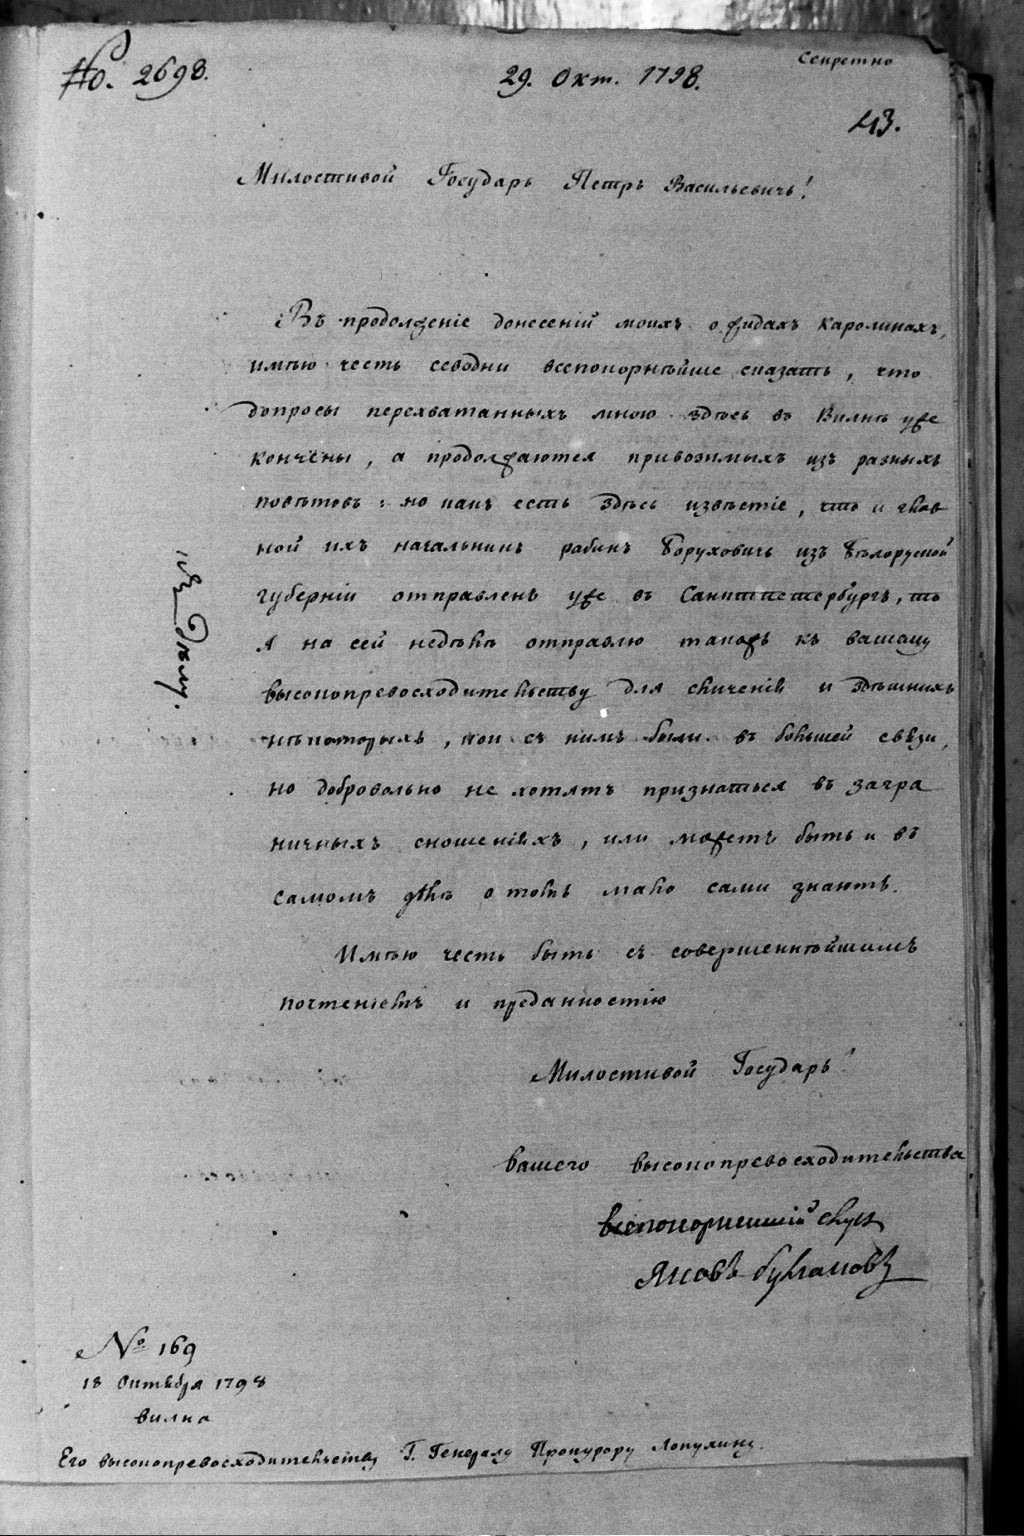 No. 2698.
29. Окт. 1798.
Секретно
43.
Милостивой Государь Петръ Васильевичь!
Въ продолженіе донесеній моихъ о жидахъ Каролинахъ,
имѣю честь севодни всепокорнѣйше сказать, что
допросы перехватанныхъ мною здѣсь въ Вилнѣ уже
кончены, а продолжаются привозимыхъ изъ разныхъ
повѣтовъ: но какъ есть здѣсь извѣстіе, что и глав
ной ихъ начальникъ рабинъ Боруховичь изъ Бѣлоруской
губерніи отправленъ уже въ Санктпетербургъ, то
я на сей недѣлѣ отправлю такожъ къ вашему
высокопревосходительству для сличенія и здѣшнихъ
нѣкоторыхъ, кои съ нимъ были въ большей связи,
но добровольно не хотятъ признаться въ загра
ничныхъ сношеніяхъ, или можетъ быть и въ
самомъ дѣлѣ о томъ мало сами знаютъ.
Имѣю честь быть съ совершеннѣйшимъ
почтеніемъ и преданностію
Милостивой Государь!
вашего высокопревосходительства
всепокорнейшій слуга
Яковъ Булгаковъ
къ дѣлу.
№ 169
18 Октября 1798
Вилна
Его высокопревосходительству Г. Генералу Прокурору Лопухину.